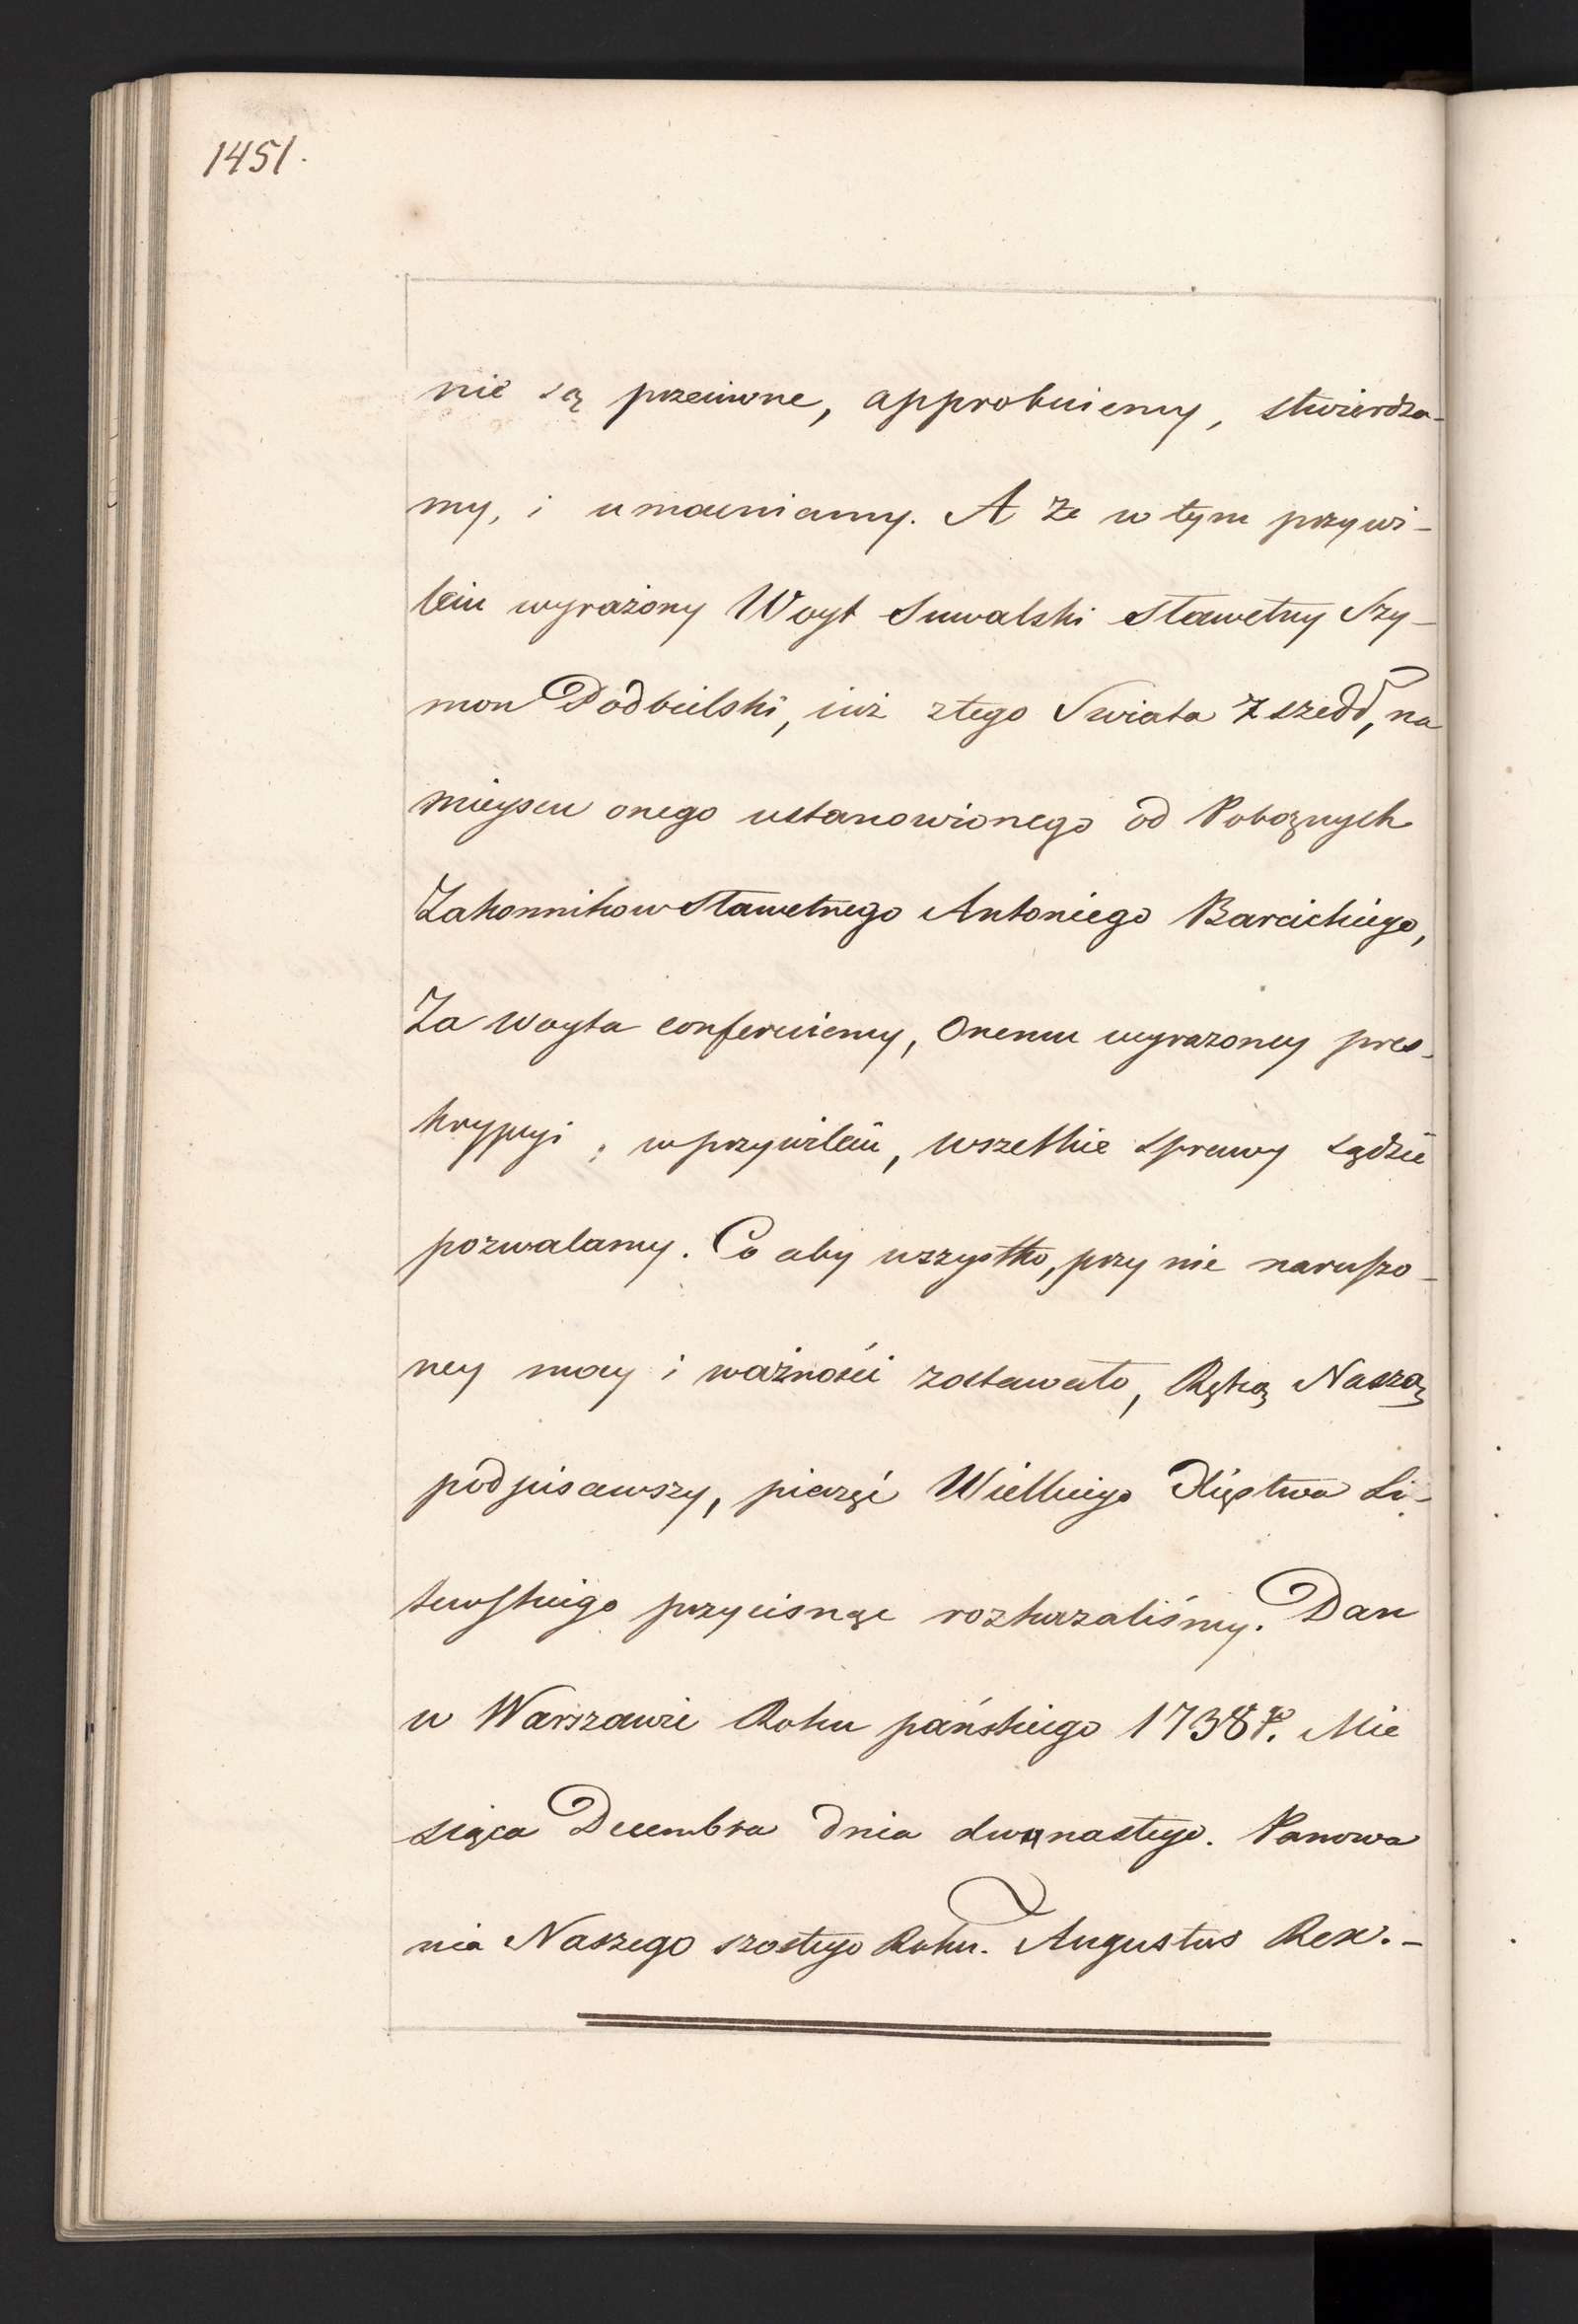 1451.
nie są przeciwne, approbuiemy, stwierdza-
my, i umacniamy. A że w tym przywi-
leiu wyrażony Woyt Suwalski Sławetny Szy-
mon Podbielski, iuż ztego Swiata Zszedł, na
mieyscu onego ustanowionego od Pobożnych
Zakonnikow Sławetnego Antoniego Barcickiego,
Za Woyta conferuiemy, Onemu wyrazoney pres-
krypcyi w przywileiu, wszelkie sprawy sądzić
pozwalamy. Co aby wszystko, przy nie naruszo-
ney mocy i ważności zostawało, Ręką Naszą
podpisawszy, pieczęć Wielkiego Xięstwa Li-
tewskiego przycisnąć rozkazaliśmy. Dan
w Warszawie Roku pańskiego 1738go. Mie
siąca Decembra dnia dwunastego. Panowa
nia Naszego szostego Roku. Augustus Rex. -